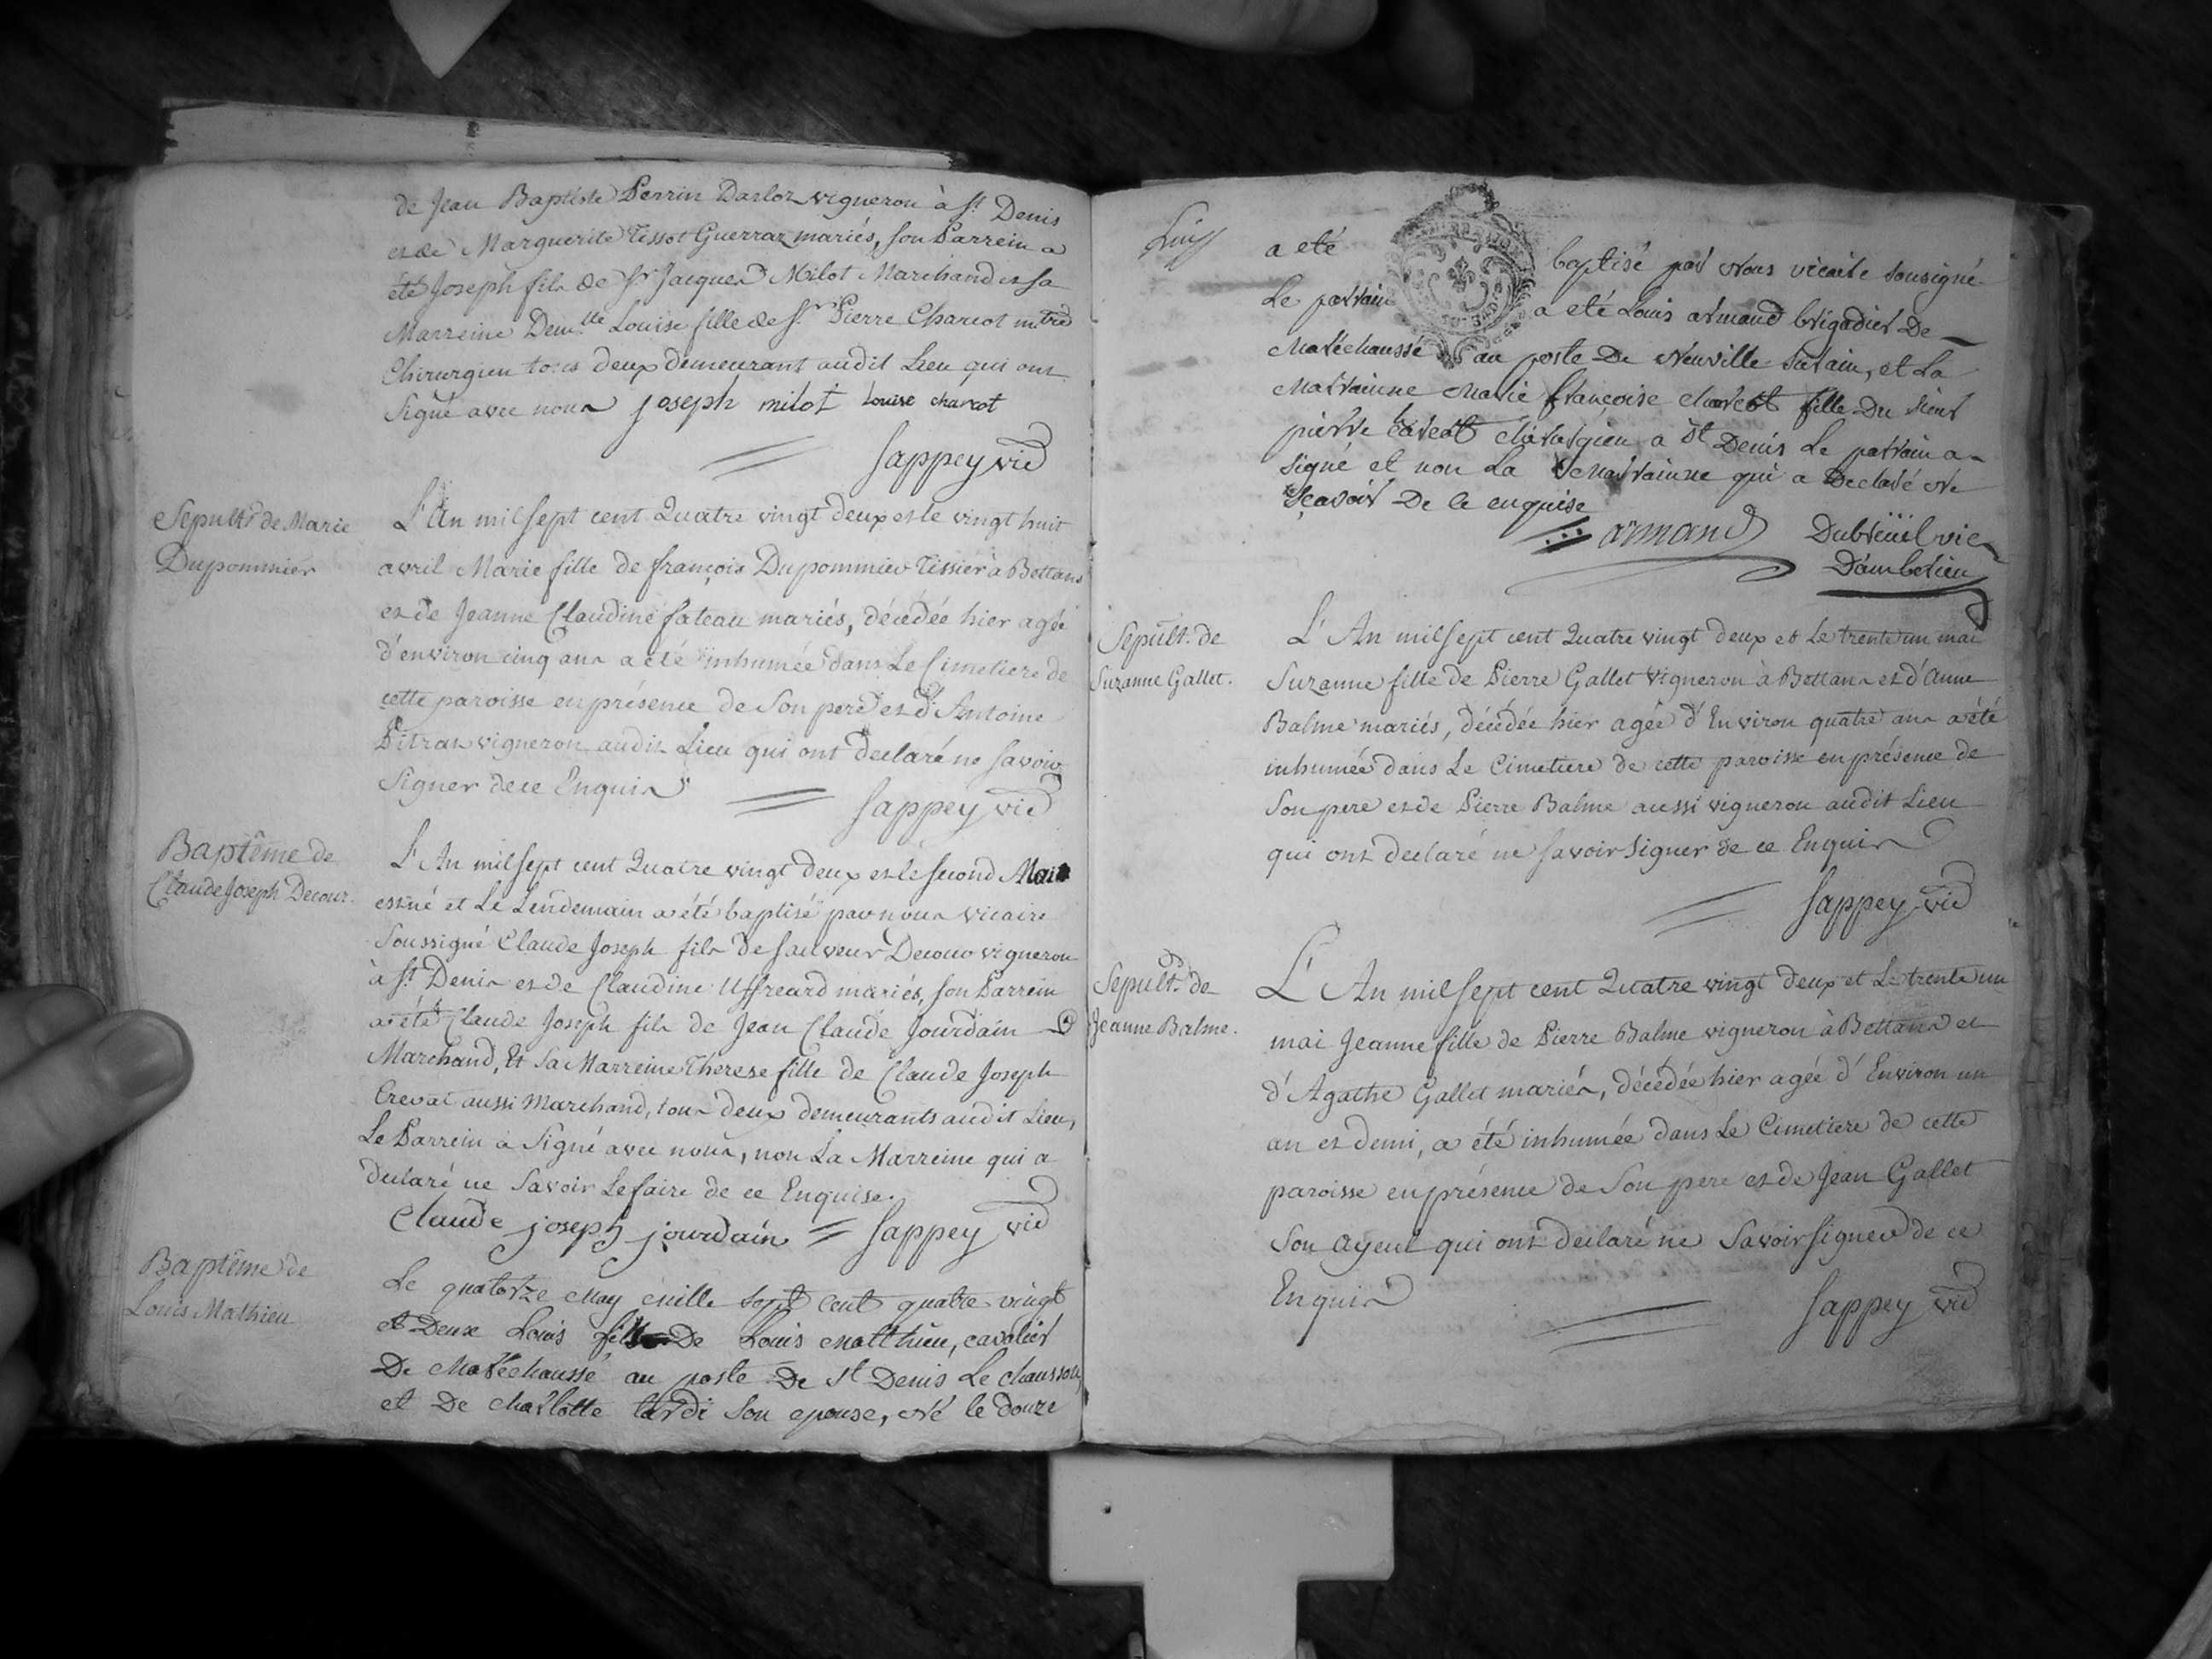 de Jean Baptiste Perrin Darloz vigneron à St Denis
et de Marguerite Tissot Guerraz mariés, son Parrein a
été Joseph fils de Sr Jacques Milot Marchand et sa
Marreine Demlle Louise fille de Sr Pierre Charcot mtre
Chirurgien tous deux demeurant audit Lieu qui ont
signé avec nous joseph milot Louise charcot
Sappey vic
Sepultre de Marie
Dupommier
L'An mil sept cent Quatre vingt deux et le vingt huit
avril Marie fille de françois Dupommier Tissier à Bettans
et de Jeanne Claudine fateau mariés, décédée hier agée
d'environ cinq ans a été inhumée dans Le Cimetiere de
cette paroisse en présence de Son pere et d'Antoine
Pitraz vigneron audit Lieu qui ont declaré ne savoir
signer de ce Enquis
Sappey vic
Baptême de
Claude Joseph Decour.
L'An mil sept cent Quatre vingt deux et le second Mai
est né et Le Lendemain a été baptisé par nous vicaire
Soussigné Claude Joseph fils de Sauveur Decour vigneron
à St Denis et de Claudine Uffreard mariés, son Parrein
a été Claude Joseph fils de Jean Claude Jourdain
Marchand, Et sa Marreine Therese fille de Claude Joseph
Crevat aussi Marchand, tous deux demeurants audit Lieu,
Le Parrein a signé avec nous, non La Marreine qui a
declaré ne savoir Le faire de ce Enquise.
Claude joseph jourdain Sappey vic
Baptême de
Louis Mathieu
Le quatorze May mille sept cent quatre vingt
et Deux Louis fils De Louis Matthieu, cavalier
De Maréchaussé au poste De St Denis Le chausson,
et De Charlotte tardi son epouse, Né le douze
a eté baptisé par Nous vicaire sousigné
Le parrain a eté Louis armand brigadier De
Maréchaussé au poste De Neuville Sur ain, et La
Marrainne Marie françoise charcot fille Du sieur
pierre charcot chirurgien a St Denis Le parrain a
signé et non La Marrainne qui a Declaré Ne
sçavoir De ce enquise
armand Dubreüil vic
D'ambérieu
Sepult. de
Suzanne Gallet.
L'An mil sept cent Quatre vingt deux et Le trente un mai
Suzanne fille de Pierre Gallet vigneron à Bettans et d'Anne
Balme mariés, décédée hier agée d'Environ quatre ans a été
inhumée dans Le Cimetiere de cette paroisse en présence de
Son pere et de Pierre Balme aussi vigneron audit Lieu
qui ont declaré ne savoir signer de ce Enquis
Sappey vic
Sepult. de
Jeanne Balme.
L'An mil sept cent Quatre vingt deux et Le trente un
mai Jeanne fille de Pierre Balme vigneron à Bettans et
d'Agathe Gallet mariés, décédée hier agée d'Environ un
an et demi, a été inhumée dans Le Cimetiere de cette
paroisse en présence de Son pere et de Jean Gallet
Son ayeul qui ont declaré ne savoir signer de ce
Enquis
Sappey vic